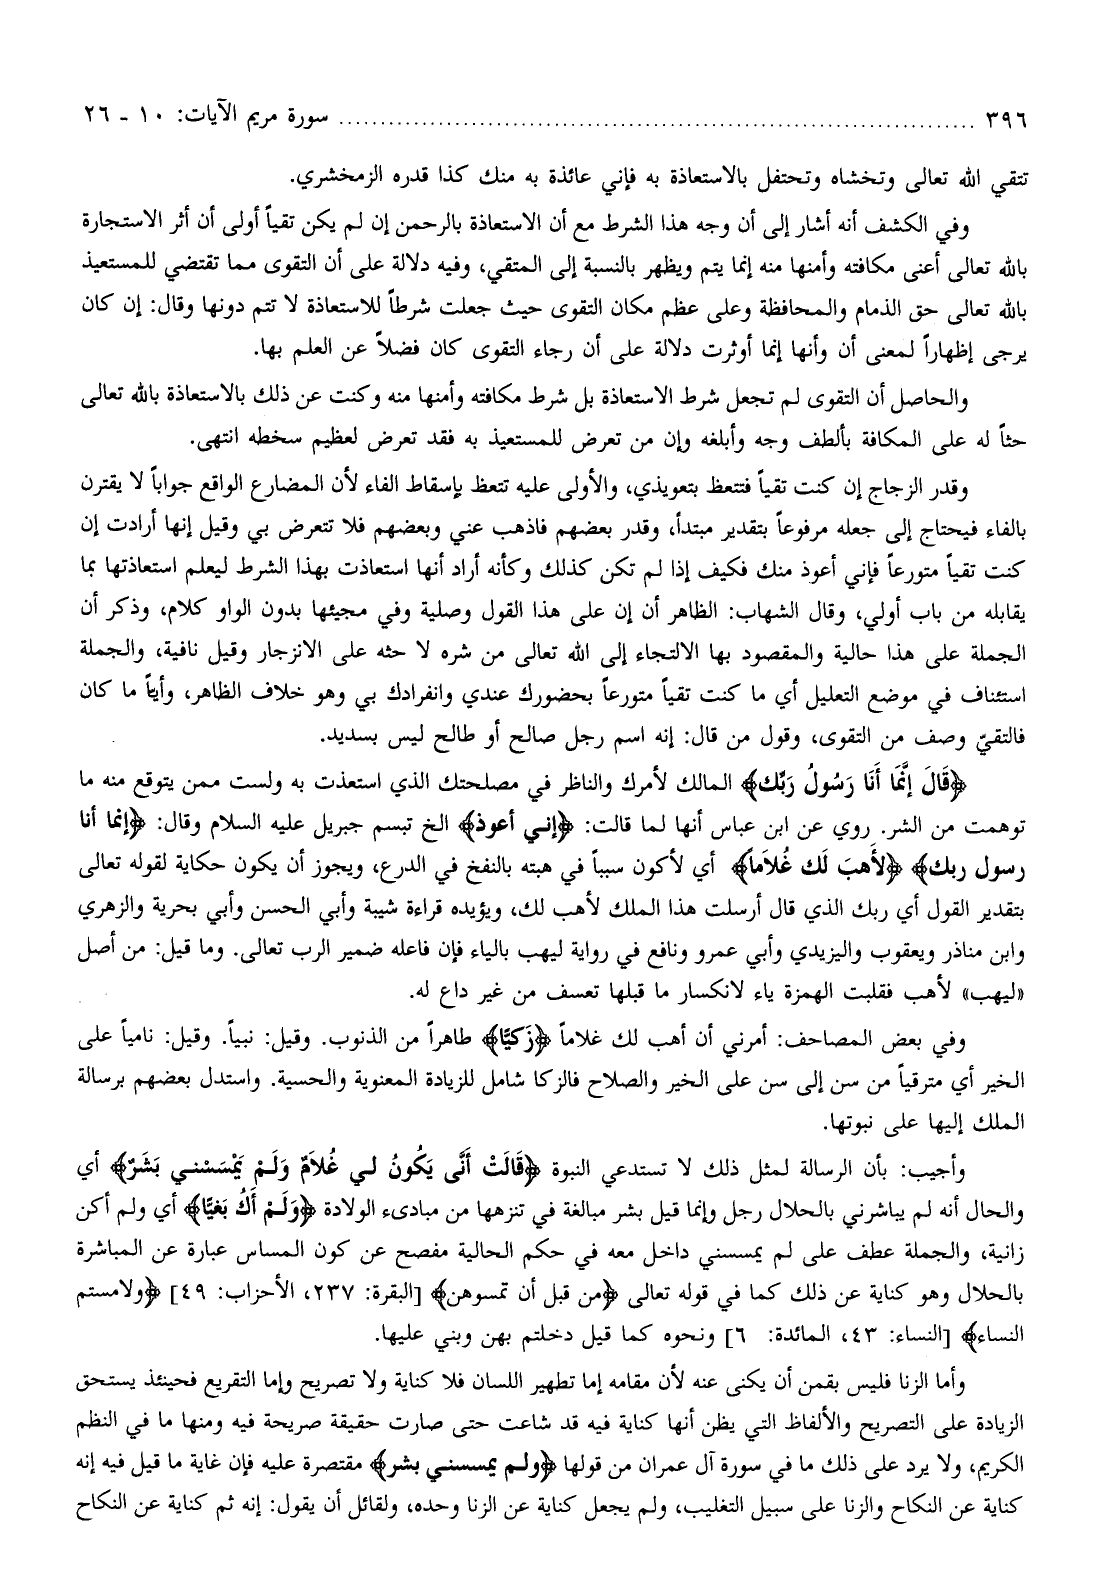 ٣٩٦ ............................................................................. سورة مريم الآيات: ١٠ ـ ٢٦
تتقي الله تعالى وتخشاه وتحتفل بالاستعاذة به فإني عائذة به منك كذا قدره الزمخشري.
وفي الكشف أنه أشار إلى أن وجه هذا الشرط مع أن الاستعاذة بالرحمن إن لم يكن تقياً أولى أن أثر الاستجارة
بالله تعالى أعنى مكافته وأمنها منه إنما يتم ويظهر بالنسبة إلى المتقي، وفيه دلالة على أن التقوى مما تقتضي للمستعيذ
بالله تعالى حق الذمام والمحافظة وعلى عظم مكان التقوى حيث جعلت شرطاً للاستعاذة لا تتم دونها وقال: إن كان
يرجى إظهاراً لمعنى أن وأنها إنما أوثرت دلالة على أن رجاء التقوى كان فضلاً عن العلم بها.
والحاصل أن التقوى لم تجعل شرط الاستعاذة بل شرط مكافته وأمنها منه وكنت عن ذلك بالاستعاذة بالله تعالى
حثاً له على المكافة بألطف وجه وأبلغه وإن من تعرض للمستعيذ به فقد تعرض لعظيم سخطه انتهى.
وقدر الزجاج إن كنت تقياً فتتعظ بتعويذي، والأولى عليه تتعظ بإسقاط الفاء لأن المضارع الواقع جواباً لا يقترن
بالفاء فيحتاج إلى جعله مرفوعاً بتقدير مبتدأ، وقدر بعضهم فاذهب عني وبعضهم فلا تتعرض بي وقيل إنها أرادت إن
كنت تقياً متورعاً فإني أعوذ منك فكيف إذا لم تكن كذلك وكأنه أراد أنها استعاذت بهذا الشرط ليعلم استعاذتها بما
يقابله من باب أولي، وقال الشهاب: الظاهر أن إن على هذا القول وصلية وفي مجيئها بدون الواو كلام، وذكر أن
الجملة على هذا حالية والمقصود بها الالتجاء إلى الله تعالى من شره لا حثه على الانزجار وقيل نافية، والجملة
استئناف في موضع التعليل أي ما كنت تقياً متورعاً بحضورك عندي وانفرادك بي وهو خلاف الظاهر، وأياً ما كان
فالتقيّ وصف من التقوى، وقول من قال: إنه اسم رجل صالح أو طالح ليس بسديد.
﴿قَالَ إِنَّمَا أَنَا رَسُولُ رَبِّك﴾ المالك لأمرك والناظر في مصلحتك الذي استعذت به ولست ممن يتوقع منه ما
توهمت من الشر. روي عن ابن عباس أنها لما قالت: ﴿إني أعوذ﴾ الخ تبسم جبريل عليه السلام وقال: ﴿إنما أنا
رسول ربك﴾ ﴿لأَهبَ لَك غُلاَماً﴾ أي لأكون سبباً في هبته بالنفخ في الدرع، ويجوز أن يكون حكاية لقوله تعالى
بتقدير القول أي ربك الذي قال أرسلت هذا الملك لأهب لك، ويؤيده قراءة شيبة وأبي الحسن وأبي بحرية والزهري
وابن مناذر ويعقوب واليزيدي وأبي عمرو ونافع في رواية ليهب بالياء فإن فاعله ضمير الرب تعالى. وما قيل: من أصل
«ليهب» لأهب فقلبت الهمزة ياء لانكسار ما قبلها تعسف من غير داع له.
وفي بعض المصاحف: أمرني أن أهب لك غلاماً ﴿زَكيًّا﴾ طاهراً من الذنوب. وقيل: نبياً. وقيل: نامياً على
الخير أي مترقياً من سن إلى سن على الخير والصلاح فالزكا شامل للزيادة المعنوية والحسية. واستدل بعضهم برسالة
الملك إليها على نبوتها.
وأجيب: بأن الرسالة لمثل ذلك لا تستدعي النبوة ﴿قَالَتْ أَنَّى يَكُونُ لي غُلاَمٌ وَلَمْ يَمْسَسْني بَشَرٌ﴾ أي
والحال أنه لم يباشرني بالحلال رجل وإنما قيل بشر مبالغة في تنزهها من مبادىء الولادة ﴿وَلَمْ أَكُ بَغيًّا﴾ أي ولم أكن
زانية، والجملة عطف على لم يمسسني داخل معه في حكم الحالية مفصح عن كون المساس عبارة عن المباشرة
بالحلال وهو كناية عن ذلك كما في قوله تعالى ﴿من قبل أن تمسوهن﴾ [البقرة: ٢٣٧، الأحزاب: ٤٩] ﴿ولامستم
النساء﴾ [النساء: ٤٣، المائدة: ٦] ونحوه كما قيل دخلتم بهن وبني عليها.
وأما الزنا فليس بقمن أن يكنى عنه لأن مقامه إما تطهير اللسان فلا كناية ولا تصريح وإما التقريع فحينئذ يستحق
الزيادة على التصريح والألفاظ التي يظن أنها كناية فيه قد شاعت حتى صارت حقيقة صريحة فيه ومنها ما في النظم
الكريم، ولا يرد على ذلك ما في سورة آل عمران من قولها ﴿ولم يمسسني بشر﴾ مقتصرة عليه فإن غاية ما قيل فيه إنه
كناية عن النكاح والزنا على سبيل التغليب، ولم يجعل كناية عن الزنا وحده، ولقائل أن يقول: إنه ثم كناية عن النكاح